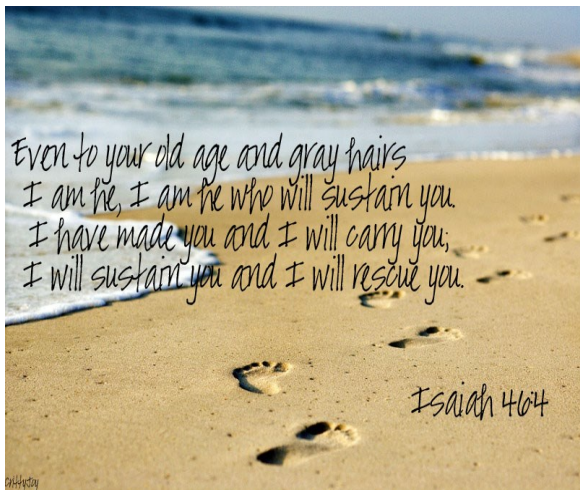 Even to your old age and gray hairs
I am he, I am he who will sustain you.
I have made you and I will carry you;
I will sustain you and I will rescue you.
Isaiah 46:4